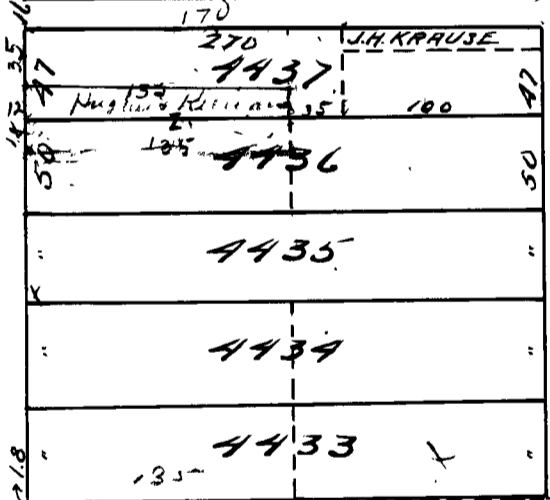 170
270 J.H. KRAUSE
35 4437
47 47
135 35 100
4436
50 50
" 4435 "
" 4434 "
" 4433 "
135